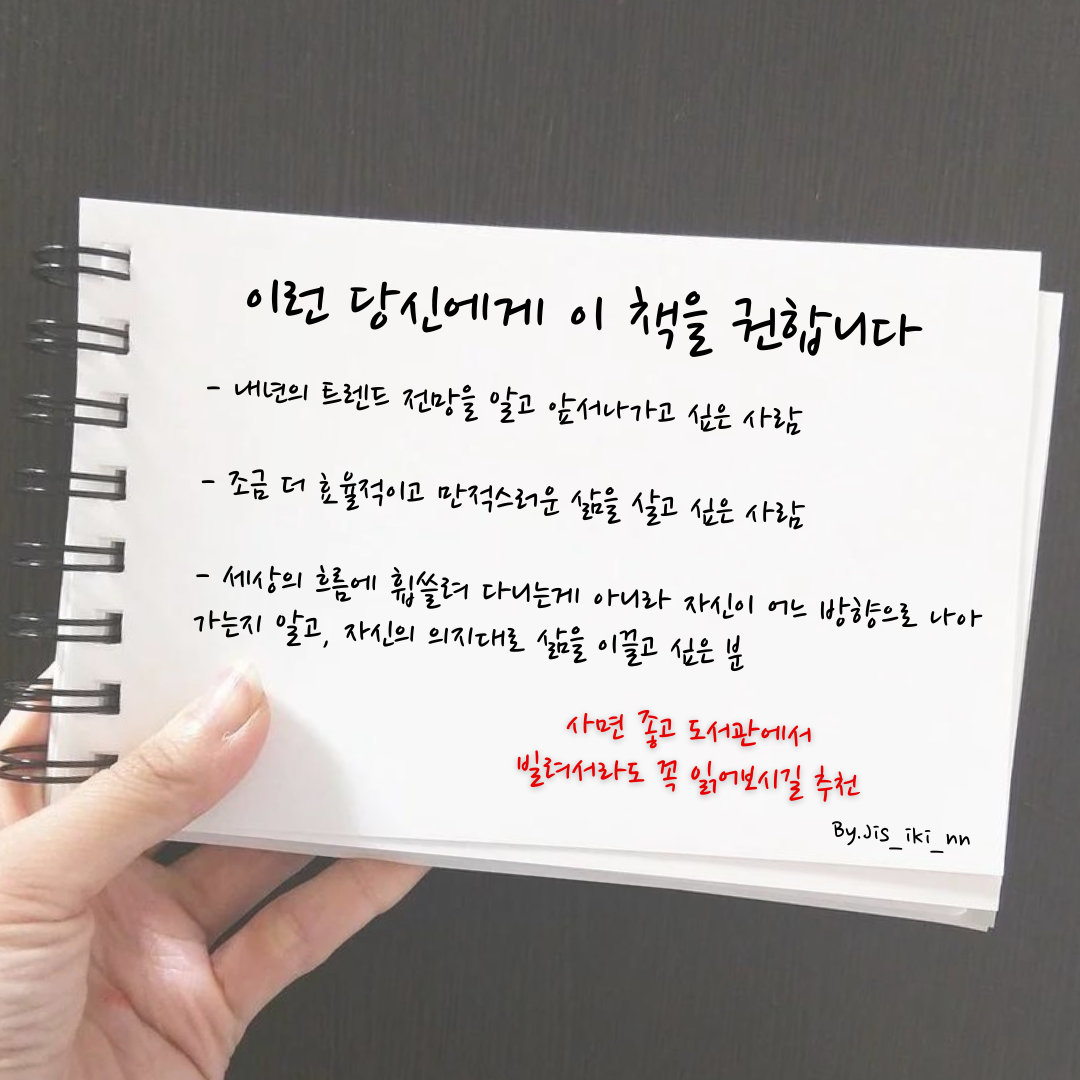 이런 당신에게 이 책을 권합니다
- 내년의 트렌드 전망을 알고 앞서나가고 싶은 사람
- 조금 더 효율적이고 만적스러운 삶을 살고 싶은 사람
- 세상의 흐름에 휩쓸려 다니는게 아니라 자신이 어느 방향으로 나아
가는지 알고, 자신의 의지대로 삶을 이끌고 싶은 분
사면 좋고 도서관에서
빌려서라도 꼭 읽어보시길 추천
By.Jis_iki_nn